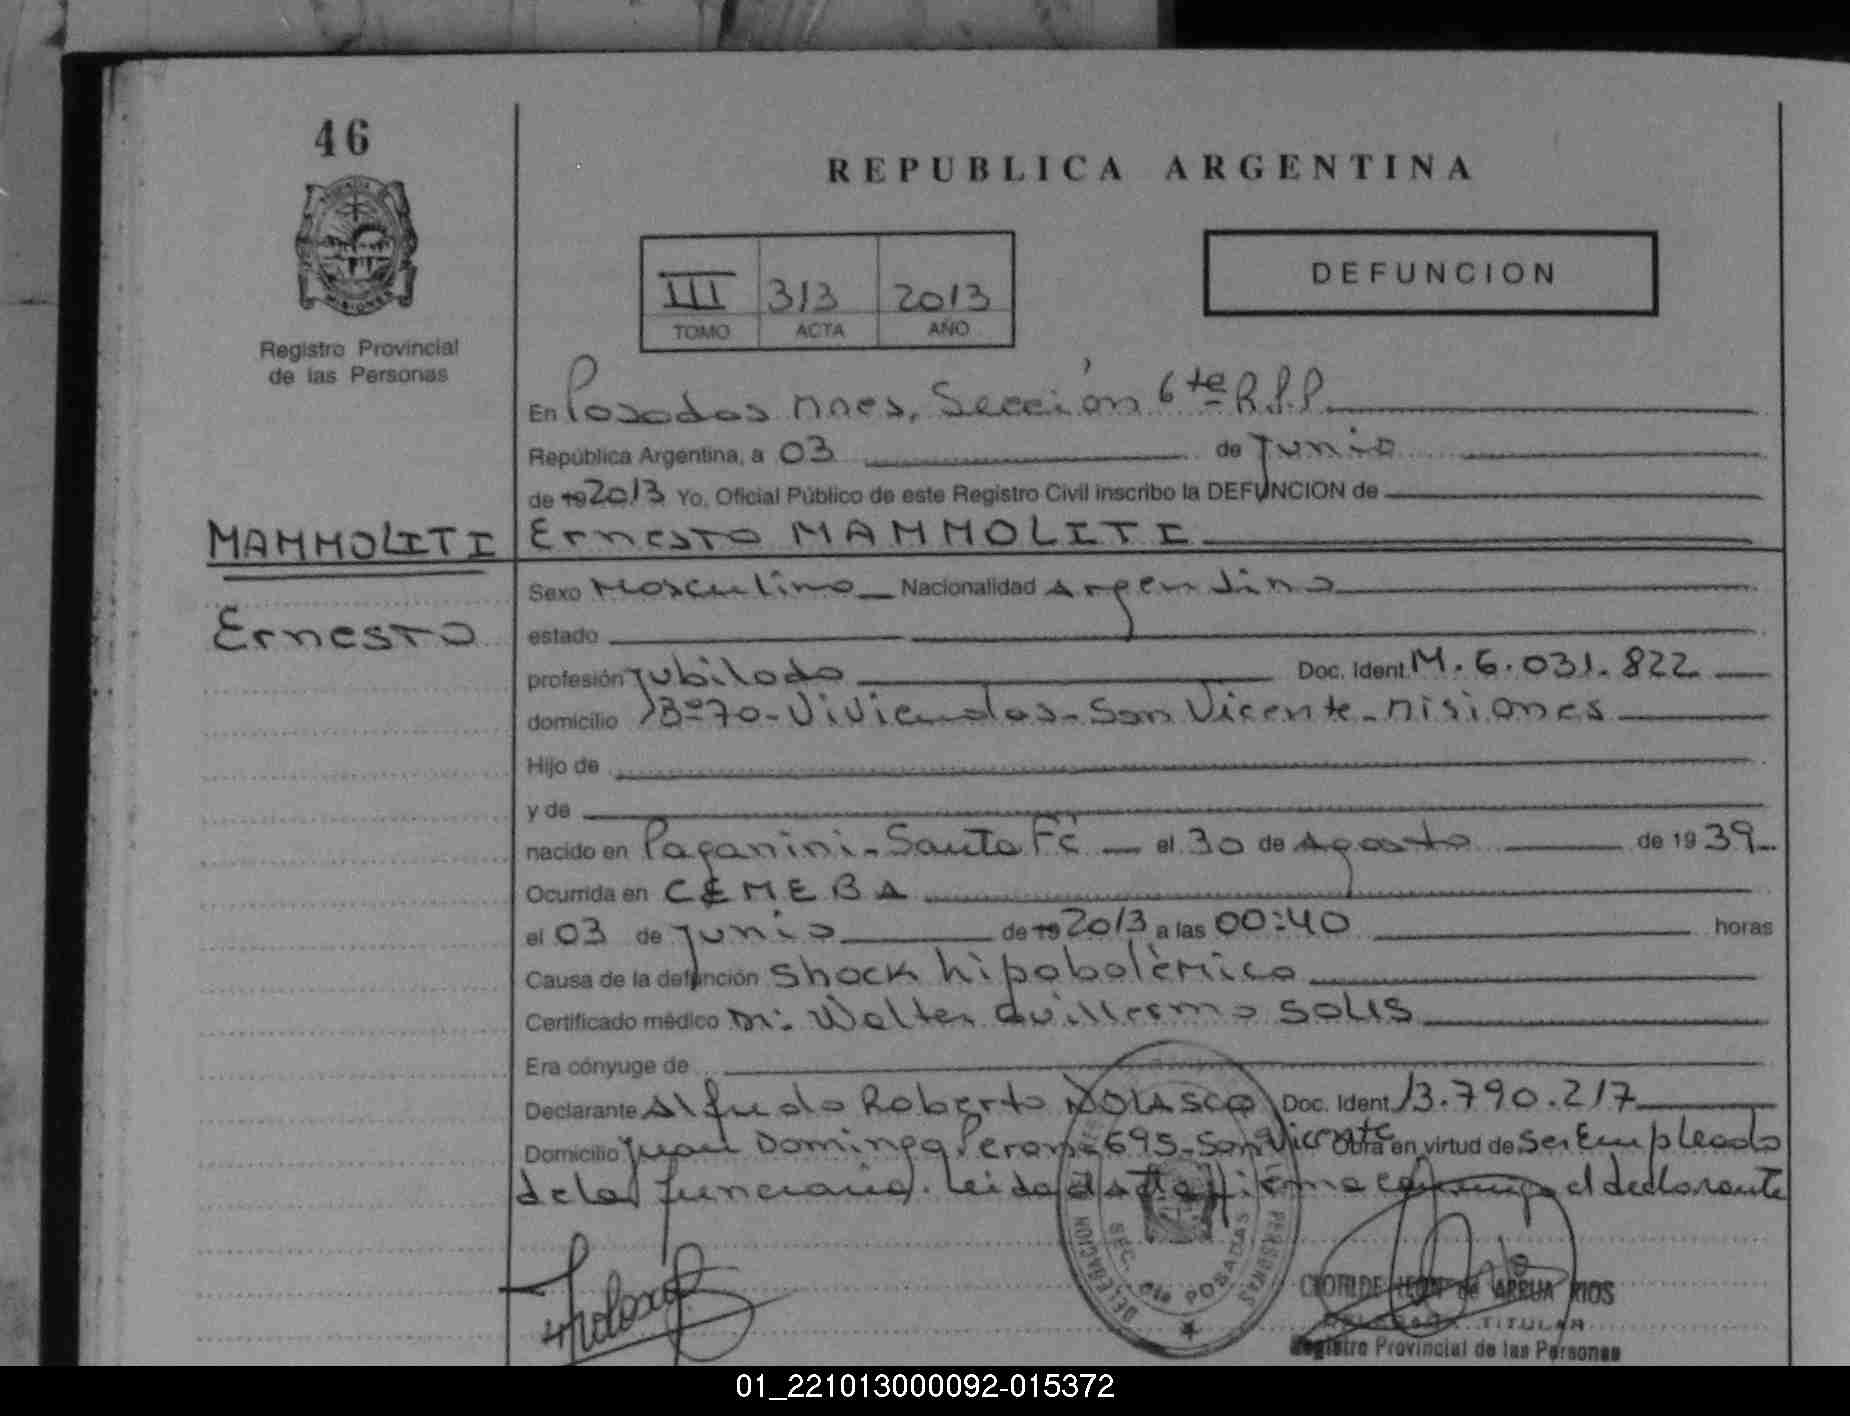 46
REPUBLICA ARGENTINA
MISIONES
Registro Provincial
de las Personas
III 313 2013
TOMO ACTA AÑO
DEFUNCION
En Posadas Mnes, Sección 6te R.P.P.
República Argentina, a 03 de Junio
de 19 2013 Yo, Oficial Público de este Registro Civil inscribo la DEFUNCION de
MAMMOLITI
Ernesto MAMMOLITI
Sexo Masculino Nacionalidad Argentina
Ernesto
estado
profesión Jubilado Doc. Ident. M. 6.031.822
domicilio Bº 70-Viviendas-San Vicente-Misiones
Hijo de
y de
nacido en Paganini-Santa Fé el 30 de Agosto de 19 39
Ocurrida en CEMEBA
el 03 de Junio de 19 2013 a las 00:40 horas
Causa de la defunción Shock hipobolèmico
Certificado médico Walter Guillermo SOLIS
Era cónyuge de
Declarante Alfredo Roberto NOLASCO Doc. Ident. 13.790.217
Domicilio Juan Domingo Peron 695-San Vicente Obra en virtud de Ser Empleado
de la funeraria. Leida el Acta firma conmigo el declarante
DELEGACION SEC. 6ta POSADAS PERSONAS
CLOTILDE LEON de ARRUA RIOS
DELEGADA TITULAR
Registro Provincial de las Personas
01_221013000092-015372